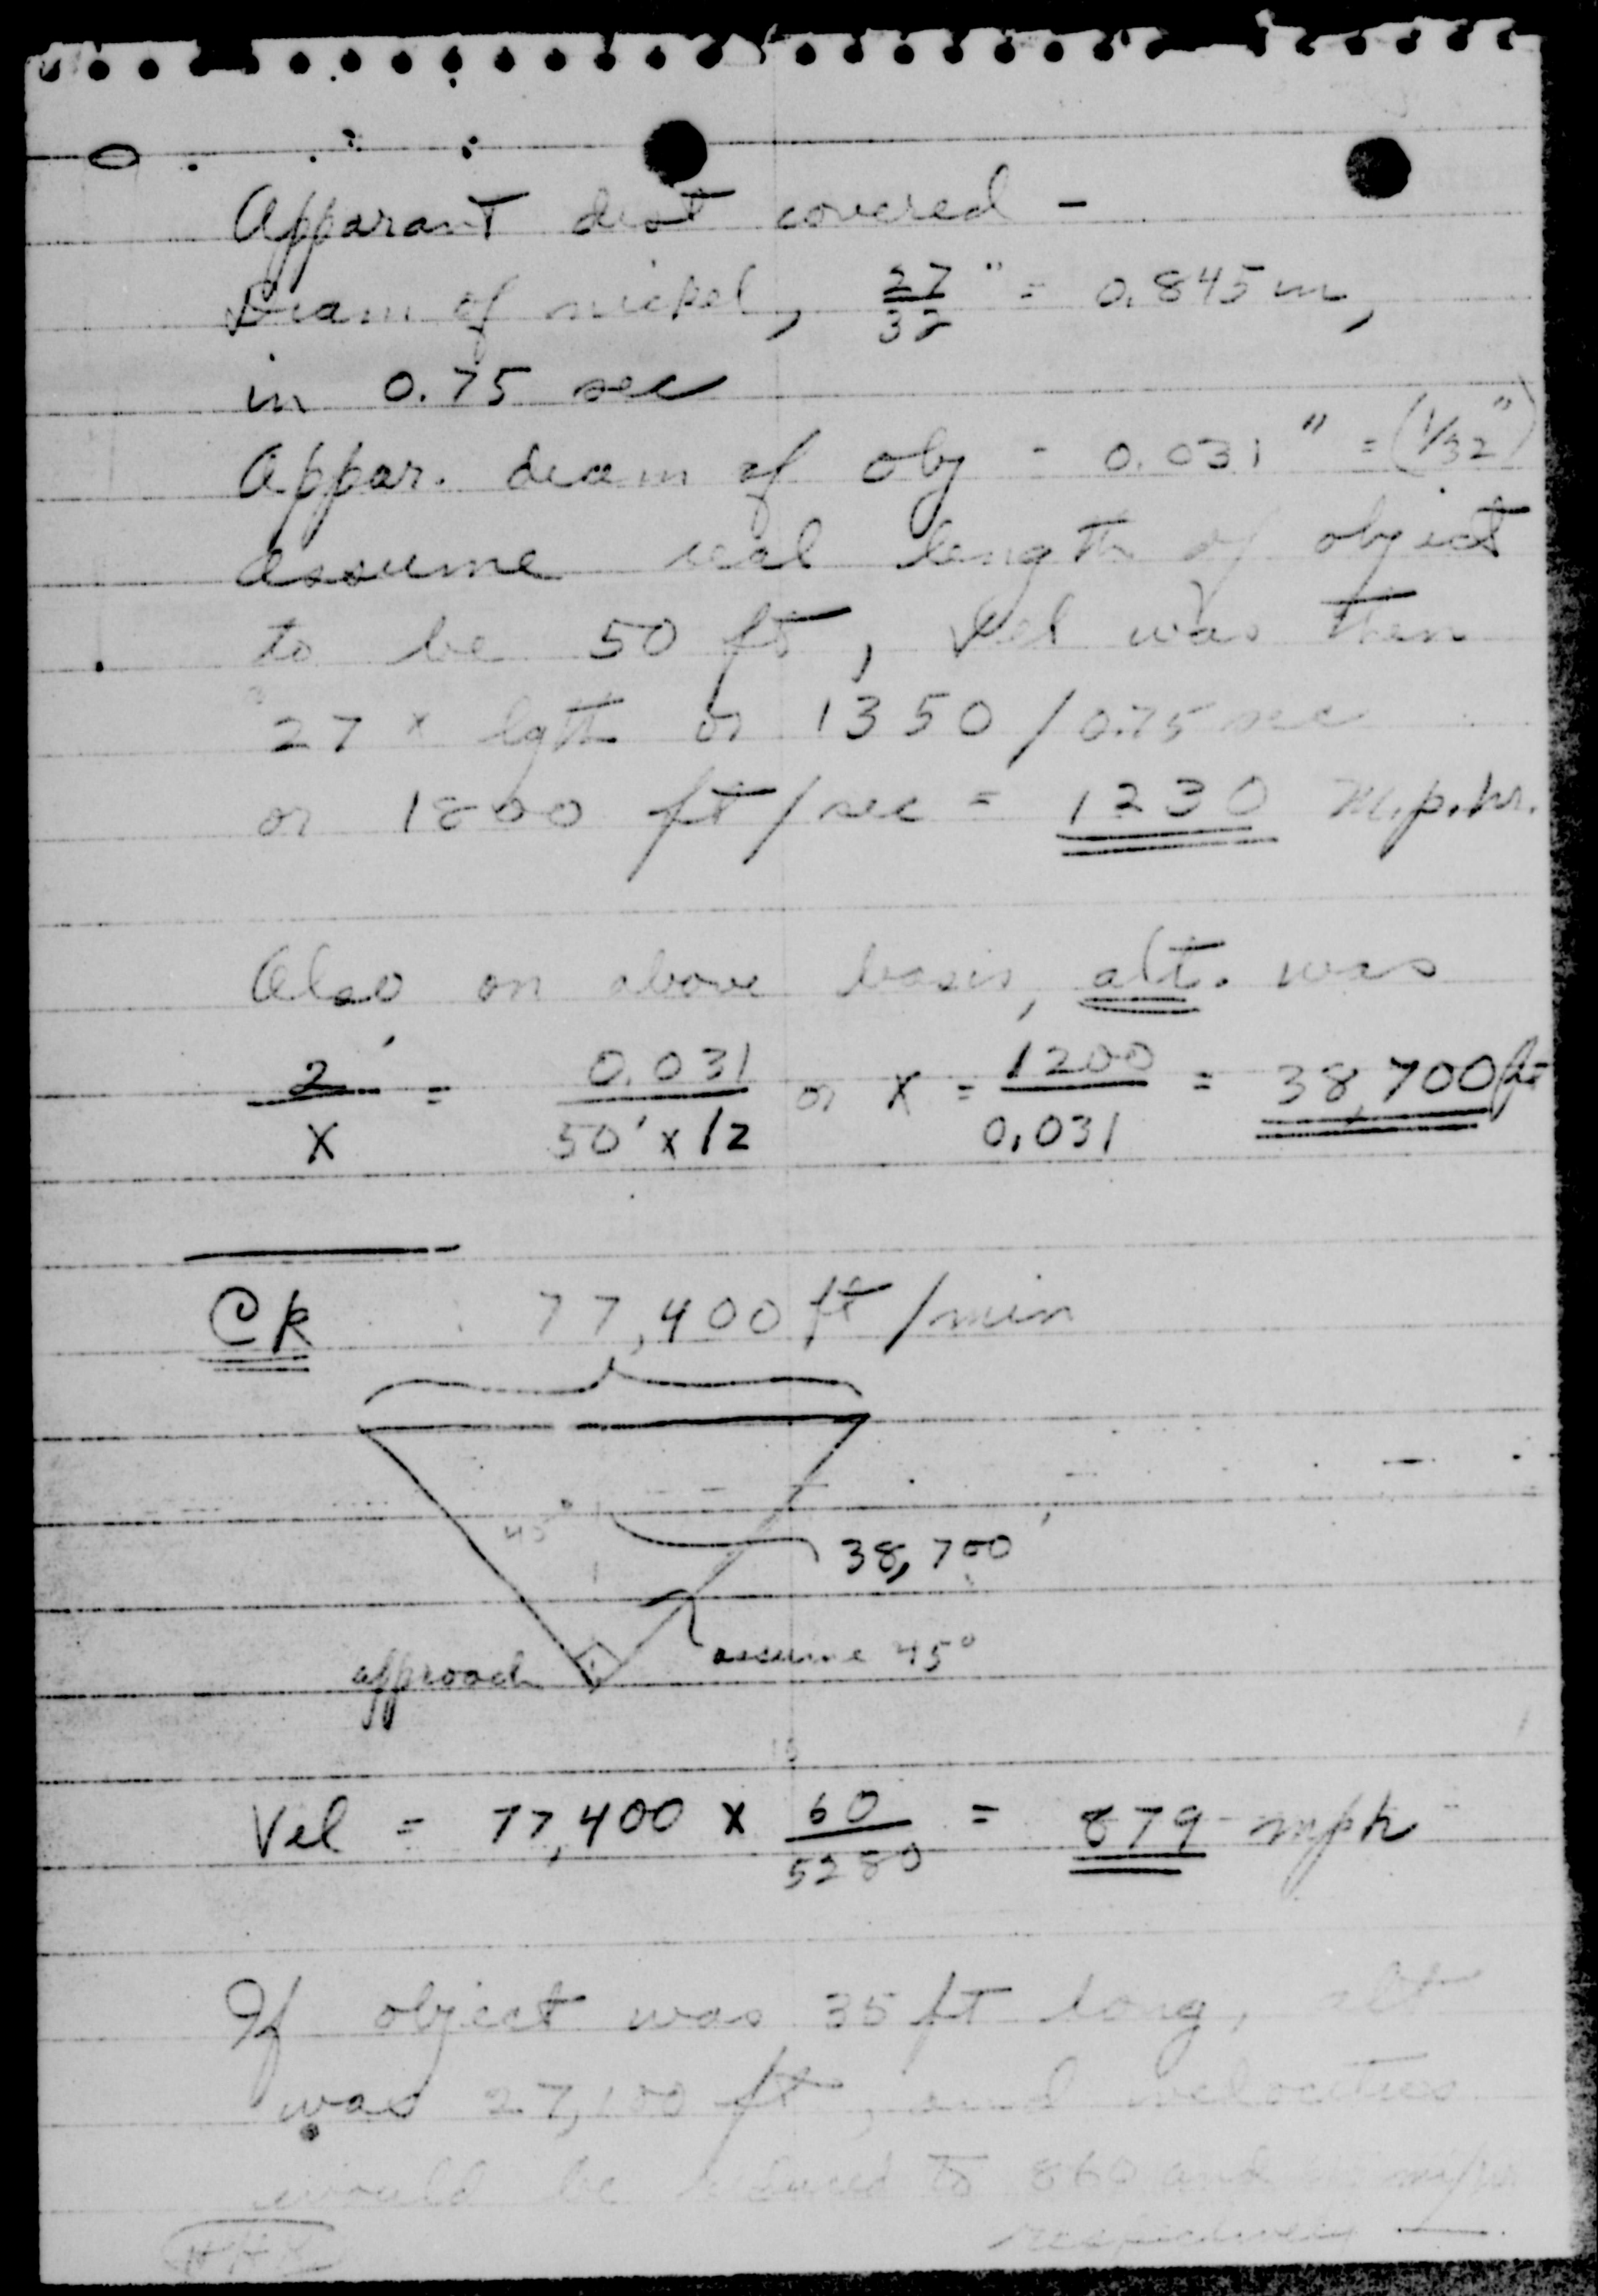 Apparant dist covered -
Diam of nickel, 27/32" = 0.845 in,
in 0.75 sec
Appar. diam of obj - 0.031" = (1/32")
assume real length of object
to be 50 ft, Vel was then
27 x lgth or 1350 / 0.75 sec
or 1800 ft/sec = 1230 m.p.hr.
Also on above basis, alt. was
2'/X = 0.031/50' x 12 or X = 1200/0.031 = 38,700 ft
Ck 77,400 ft/min
45°
38,700'
assume 45°
approach
Vel = 77,400 x 60/5280 = 879 mph
If object was 35 ft long, alt
was 27,100 ft, and velocities
would be reduced to 860 and mi/hr
respectively